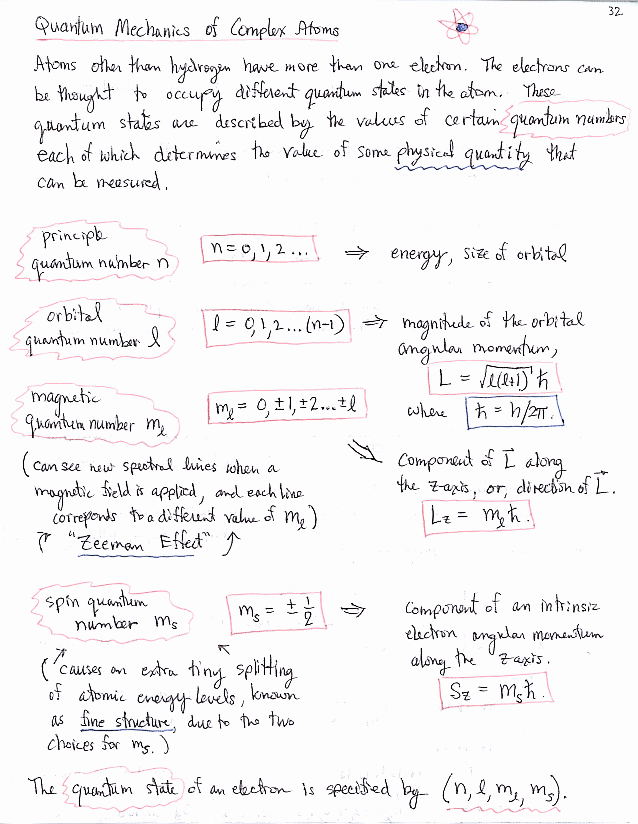 32
Quantum Mechanics of Complex Atoms
Atoms other than hydrogen have more than one electron. The electrons can
be thought to occupy different quantum states in the atom. These
quantum states are described by the values of certain quantum numbers
each of which determines the value of some physical quantity that
can be measured.
principle
quantum number n
n = 0, 1, 2 ...
⇒ energy, size of orbital
orbital
quantum number l
l = 0, 1, 2 ... (n-1)
⇒ magnitude of the orbital
angular momentum,
L = √l(l+1) ħ
where ħ = h/2π.
magnetic
quantum number mₗ
mₗ = 0, ±1, ±2 ... ±l
(can see new spectral lines when a
magnetic field is applied, and each line
correponds to a different value of mₗ)
↑ "Zeeman Effect" ↑
⇒ Component of L⃗ along
the z-axis, or, direction of L⃗.
L_z = mₗħ.
spin quantum
number mₛ
mₛ = ± 1/2
⇒ Component of an intrinsic
electron angular momentum
along the z-axis.
S_z = mₛħ.
(causes an extra tiny splitting
of atomic energy levels, known
as fine structure, due to the two
choices for mₛ.)
The quantum state of an electron is specified by (n, l, mₗ, mₛ).